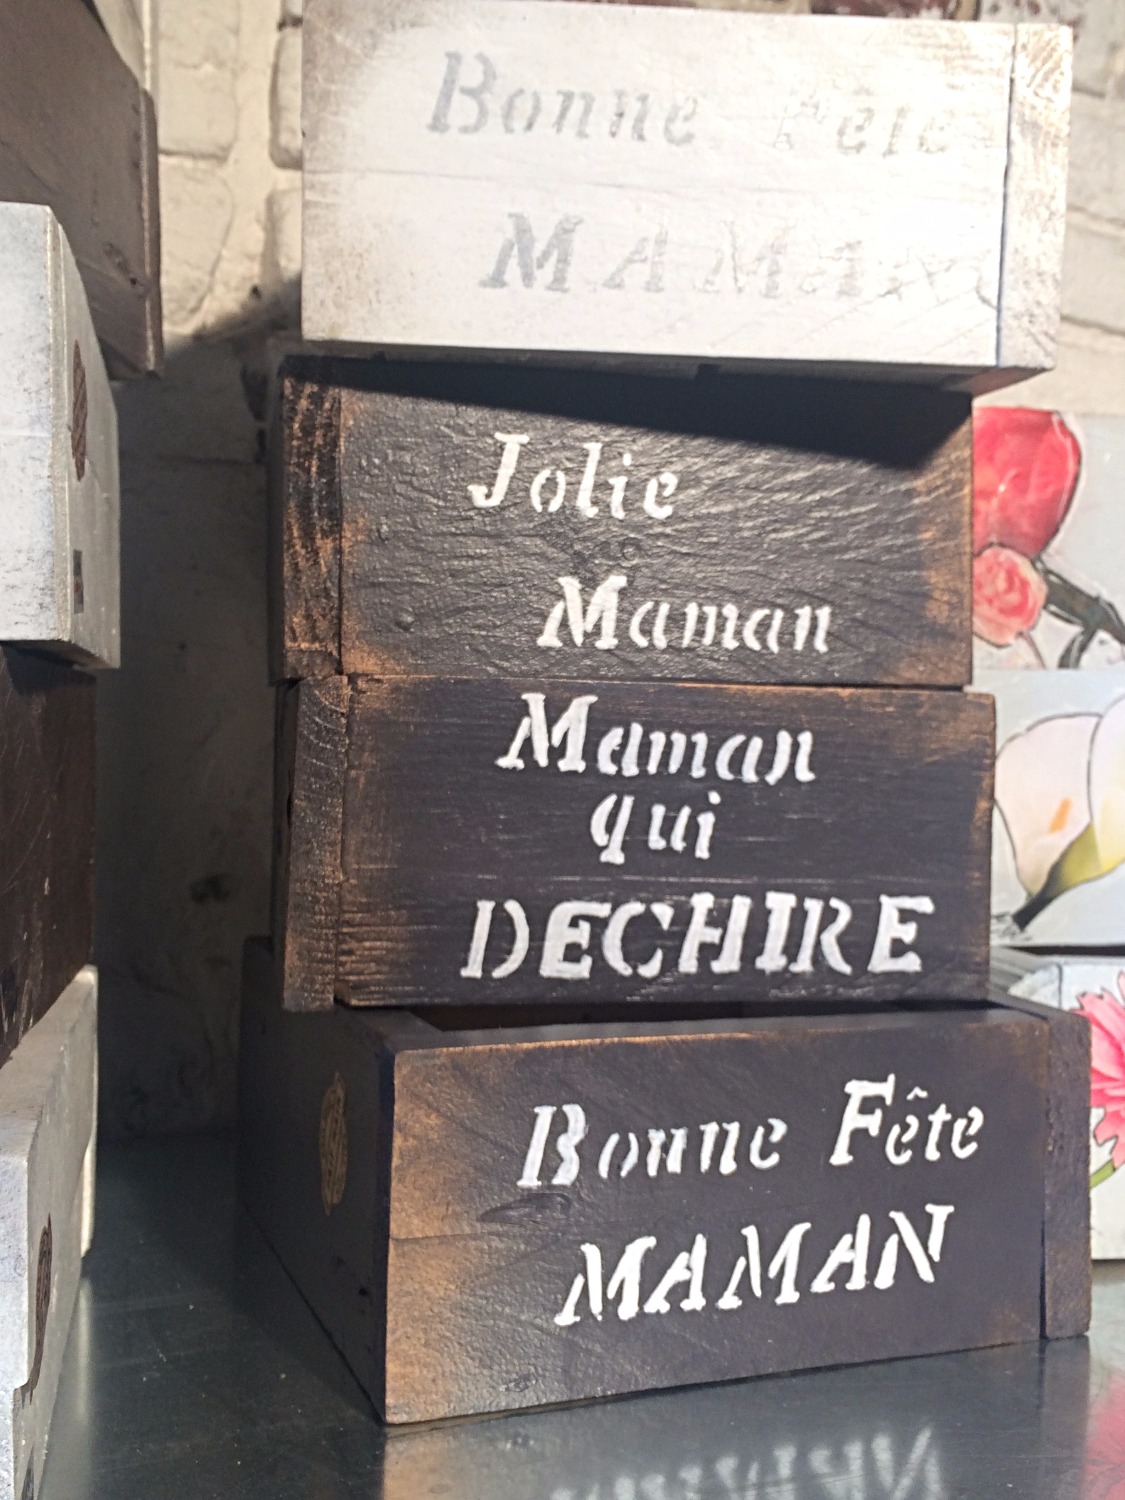 Bonne Fête
MAMAN
Jolie
Maman
Maman
qui
DECHIRE
Bonne Fête
MAMAN